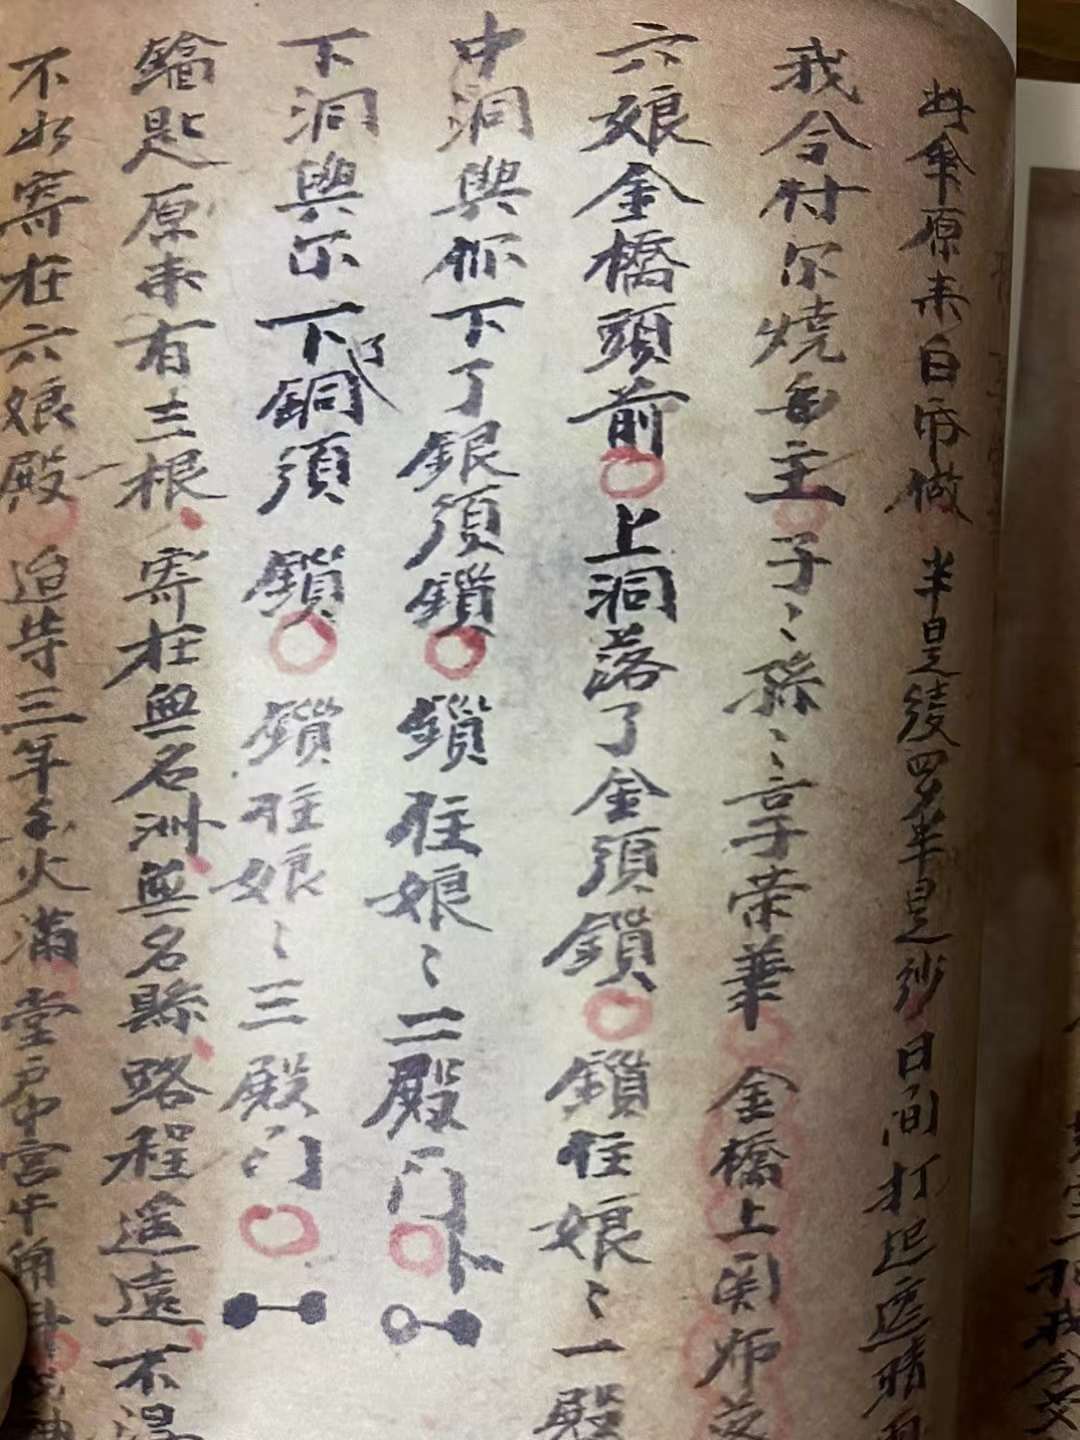 此傘原来白帝做 半是綾羅半是沙 日间打起遮晴
我今村尔燒香主 子〻孫〻享荣華 金橋上 师
六娘金橋頭前 上洞落了金須鎖 鎖住娘〻一殿
中洞與你下了銀須鎖 鎖住娘〻二殿门卜
下洞與尔下了銅須鎖 鎖住娘〻三殿门
鑰匙原来有三根 寄在無名洲無名縣 路程遥遠不得
不如寄在六娘殿 迨等三年香火滿 堂户中宮牛角